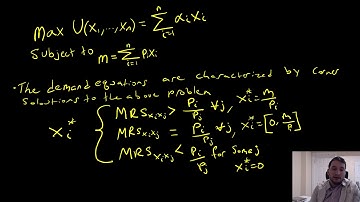 max U(x₁,...,xₙ) = Σⁿᵢ₌₁ αᵢxᵢ
Subject to m = Σⁿᵢ₌₁ Pᵢxᵢ
• The demand equations are characterized by corner
Solutions to the above problem
xᵢ* { MRSₓᵢₓⱼ > Pᵢ/Pⱼ ∀j, xᵢ* = m/Pᵢ
MRSₓᵢₓⱼ = Pᵢ/Pⱼ ∀j, xᵢ* = [0, m/Pᵢ]
MRSₓᵢₓⱼ < Pᵢ/Pⱼ for some j xᵢ* = 0